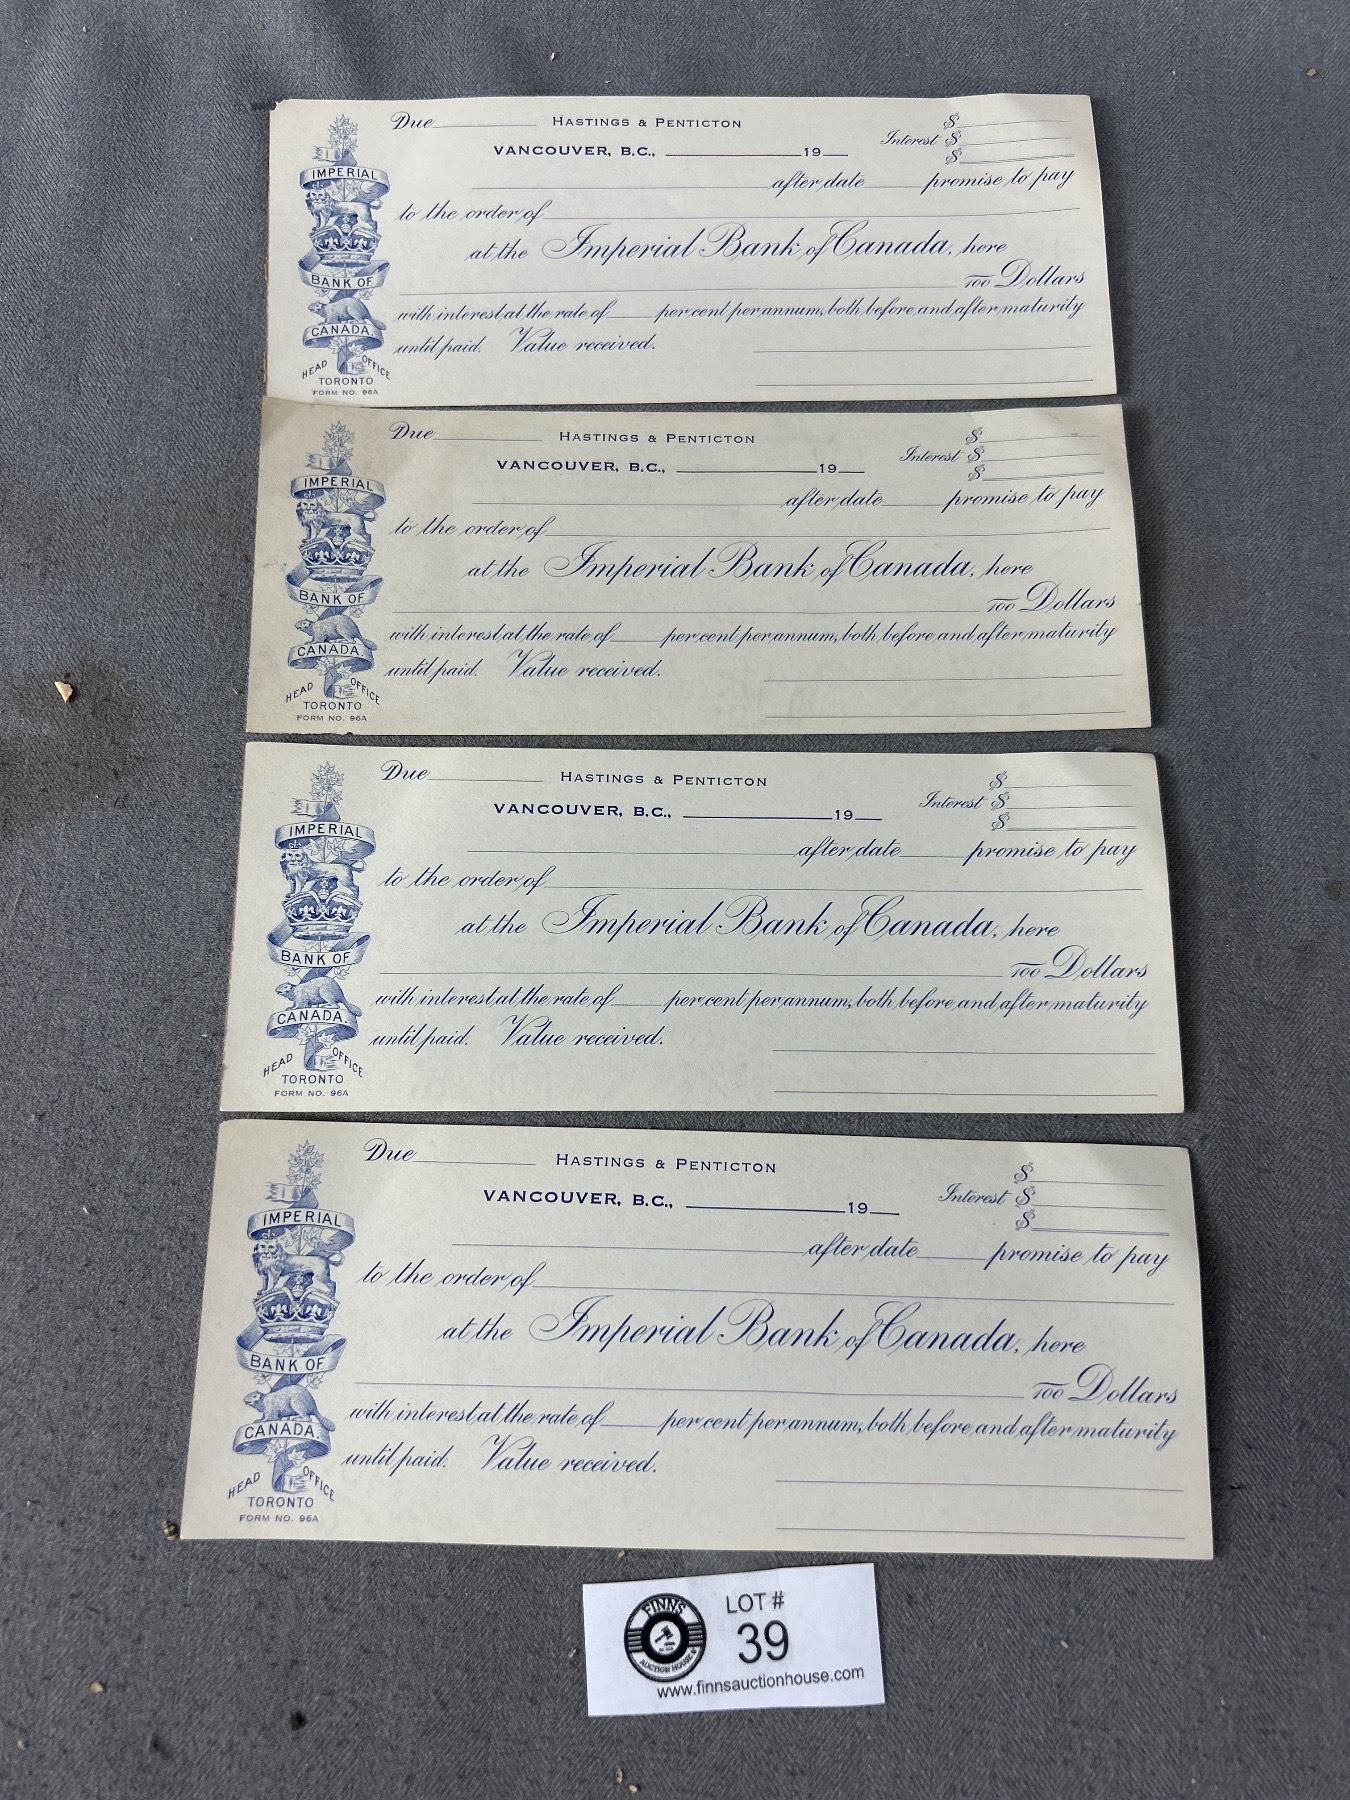 Due Hastings & Penticton $
Interest $
VANCOUVER, B.C., 19 $
after date promise to pay
to the order of
at the Imperial Bank of Canada, here
100 Dollars
with interest at the rate of per cent per annum, both before and after maturity
until paid. Value received.
IMPERIAL
BANK OF
CANADA.
HEAD OFFICE
TORONTO
FORM NO. 96A
Due Hastings & Penticton $
Interest $
VANCOUVER, B.C., 19 $
after date promise to pay
to the order of
at the Imperial Bank of Canada, here
100 Dollars
with interest at the rate of per cent per annum, both before and after maturity
until paid. Value received.
IMPERIAL
BANK OF
CANADA.
HEAD OFFICE
TORONTO
FORM NO. 96A
Due Hastings & Penticton $
Interest $
VANCOUVER, B.C., 19 $
after date promise to pay
to the order of
at the Imperial Bank of Canada, here
100 Dollars
with interest at the rate of per cent per annum, both before and after maturity
until paid. Value received.
IMPERIAL
BANK OF
CANADA.
HEAD OFFICE
TORONTO
FORM NO. 96A
Due Hastings & Penticton $
Interest $
VANCOUVER, B.C., 19 $
after date promise to pay
to the order of
at the Imperial Bank of Canada, here
100 Dollars
with interest at the rate of per cent per annum, both before and after maturity
until paid. Value received.
IMPERIAL
BANK OF
CANADA.
HEAD OFFICE
TORONTO
FORM NO. 96A
FINNS
AUCTION HOUSE
LOT #
39
www.finnsauctionhouse.com